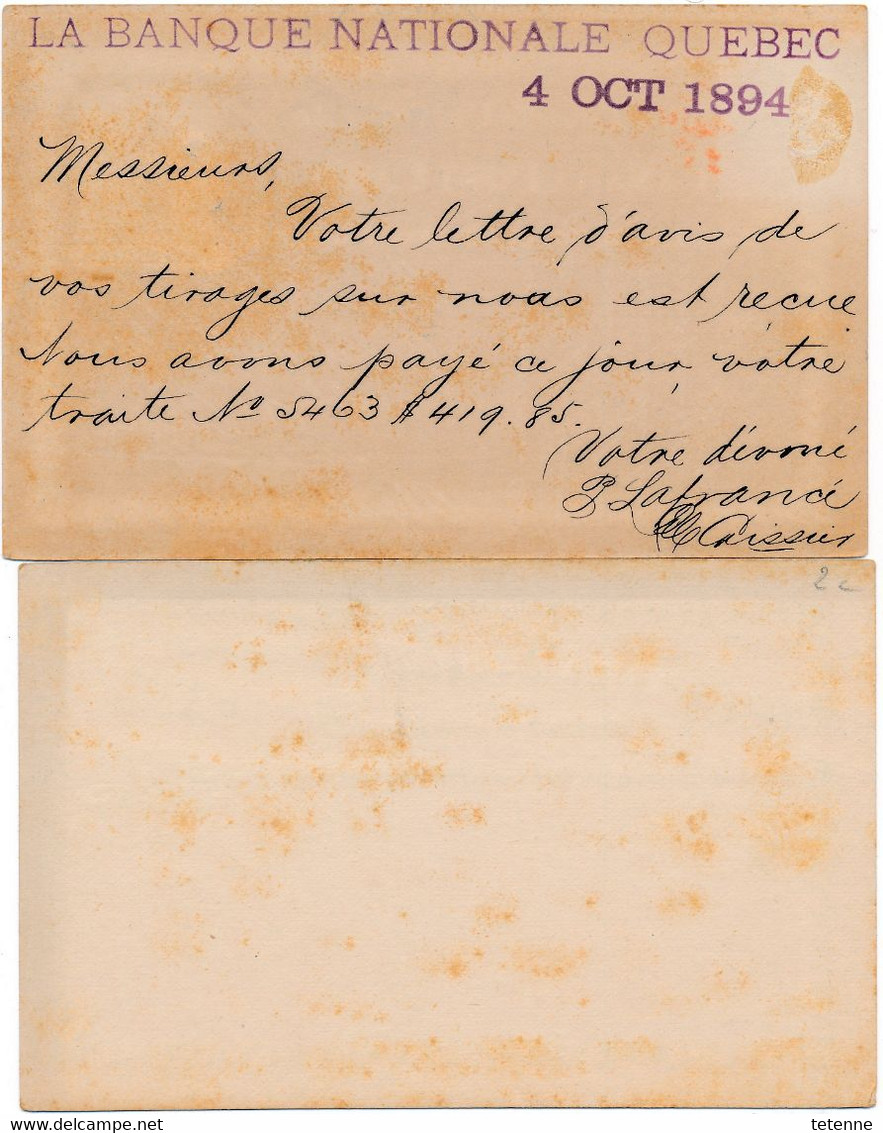 LA BANQUE NATIONALE QUEBEC
4 OCT 1894
Messieurs,
Votre lettre d'avis de
vos tirages sur nous est recue
Nous avons payé ce jour, votre
traite No 5463 $419.85.
Votre dévoué
P Lafrance
Caissier
2 c
tetenne